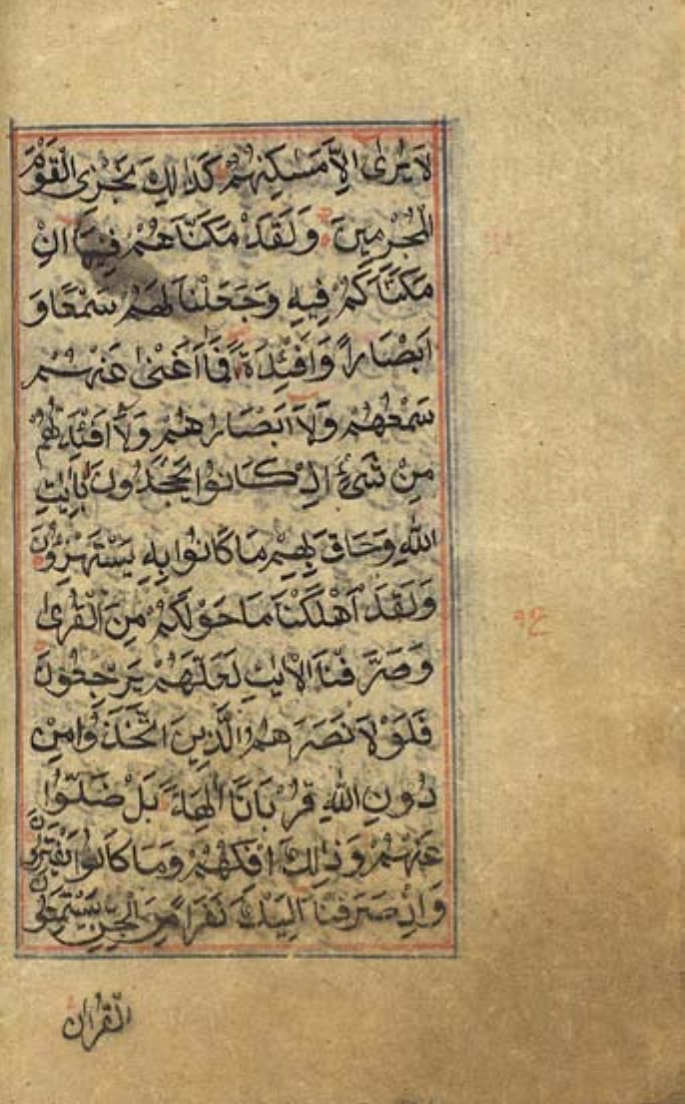 لَا يُرٰى اِلَّا مَسٰكِنُهُمْ كَذٰلِكَ نَجْزِى الْقَوْمَ
الْمُجْرِمِينَ وَلَقَدْ مَكَّنَّاهُمْ فِيهَا اِنْ
مَكَّنَّاكُمْ فِيهِ وَجَعَلْنَا لَهُمْ سَمْعًا وَ
اَبْصَارًا وَاَفْئِدَةً فَمَا اَغْنٰى عَنْهُمْ
سَمْعُهُمْ وَلَا اَبْصَارُهُمْ وَلَا اَفْئِدَتُهُمْ
مِنْ شَىْءٍ اِذْ كَانُوا يَجْحَدُونَ بِاٰيٰتِ
اللّٰهِ وَحَاقَ بِهِمْ مَا كَانُوا بِهِ يَسْتَهْزِؤُنَ
وَلَقَدْ اَهْلَكْنَا مَا حَوْلَكُمْ مِنَ الْقُرٰى
وَصَرَّفْنَا الْاٰيٰتِ لَعَلَّهُمْ يَرْجِعُونَ
فَلَوْلَا نَصَرَهُمُ الَّذِينَ اتَّخَذُوا مِنْ
دُونِ اللّٰهِ قُرْبَانًا اٰلِهَةً بَلْ ضَلُّوا
عَنْهُمْ وَذٰلِكَ اِفْكُهُمْ وَمَا كَانُوا يَفْتَرُونَ
وَاِذْ صَرَفْنَا اِلَيْكَ نَفَرًا مِنَ الْجِنِّ يَسْتَمِعُونَ
الْقُرْاٰنَ